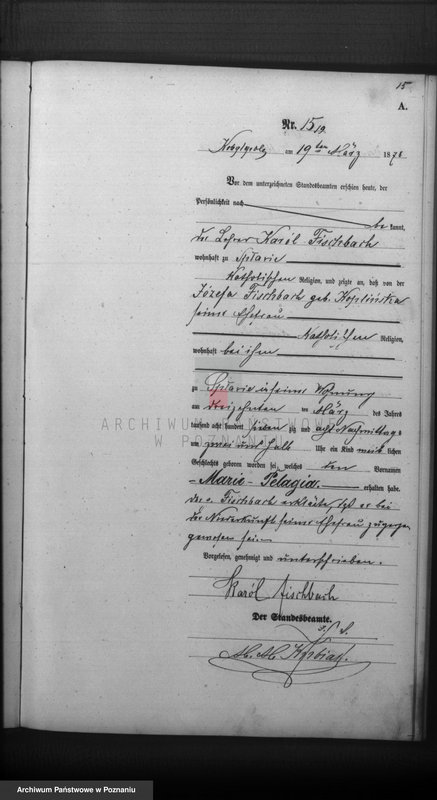 15
A.
Nr. 15
am 19ten März 1878
Vor dem unterzeichneten Standesbeamten erschien heute, der
Persönlichkeit nach
be kannt,
der Lehrer Karól Fischbach
wohnhaft zu
katholischen Religion, und zeigte an, daß von der
Józefa Fischbach geb.
seiner Ehefrau
katholischen Religion,
wohnhaft bei ihm
zu in seiner Wohnung
am dreizehnten ten März des Jahres
tausend acht hundert sieben zig und acht Nachmittags
um zwei und halb Uhr ein Kind weib lichen
Geschlechts geboren worden sei, welches den Vornamen
Marie - Pelagia. erhalten habe.
Fischbach erklärte, er bei
der Niederkunft seiner Ehefrau zugegen
gewesen sei.
Vorgelesen, genehmigt und unterschrieben.
Karól Fischbach
Der Standesbeamte.
ARCHIWUM PAŃSTWOWE
W POZNANIU
Archiwum Państwowe w Poznaniu